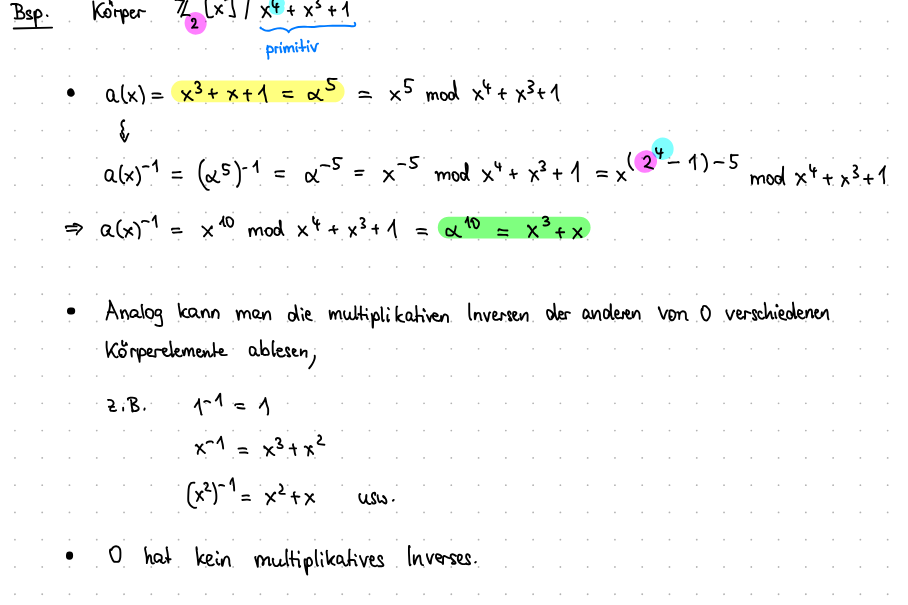 Bsp. Körper ℤ₂[x] / x⁴ + x³ + 1
primitiv
• a(x) = x³ + x + 1 = α⁵ = x⁵ mod x⁴ + x³ + 1
a(x)⁻¹ = (α⁵)⁻¹ = α⁻⁵ = x⁻⁵ mod x⁴ + x³ + 1 = x^((2⁴ - 1) - 5) mod x⁴ + x³ + 1
⇒ a(x)⁻¹ = x¹⁰ mod x⁴ + x³ + 1 = α¹⁰ = x³ + x
• Analog kann man die multiplikativen Inversen der anderen von 0 verschiedenen
Körperelemente ablesen,
z.B. 1⁻¹ = 1
x⁻¹ = x³ + x²
(x²)⁻¹ = x² + x usw.
• 0 hat kein multiplikatives Inverses.